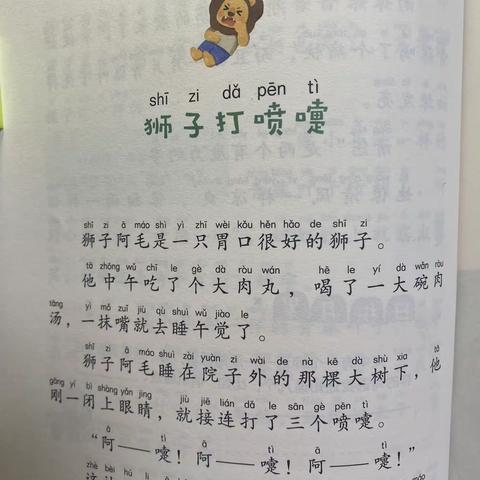 shī zi dǎ pēn tì
狮子打喷嚏
shī zi ā máo shì yì zhī wèi kǒu hěn hǎo de shī zi
狮子阿毛是一只胃口很好的狮子。
tā zhōng wǔ chī le gè dà ròu wán hē le yí dà wǎn ròu
他中午吃了个大肉丸，喝了一大碗肉
tāng yì mǒ zuǐ jiù qù shuì wǔ jiào le
汤，一抹嘴就去睡午觉了。
shī zi ā máo shuì zài yuàn zi wài de nà kē dà shù xià tā
狮子阿毛睡在院子外的那棵大树下，他
gāng yí bì shàng yǎn jing jiù jiē lián dǎ le sān gè pēn tì
刚一闭上眼睛，就接连打了三个喷嚏。
ā tì ā tì ā tì
“阿——嚏！阿——嚏！阿——嚏！”